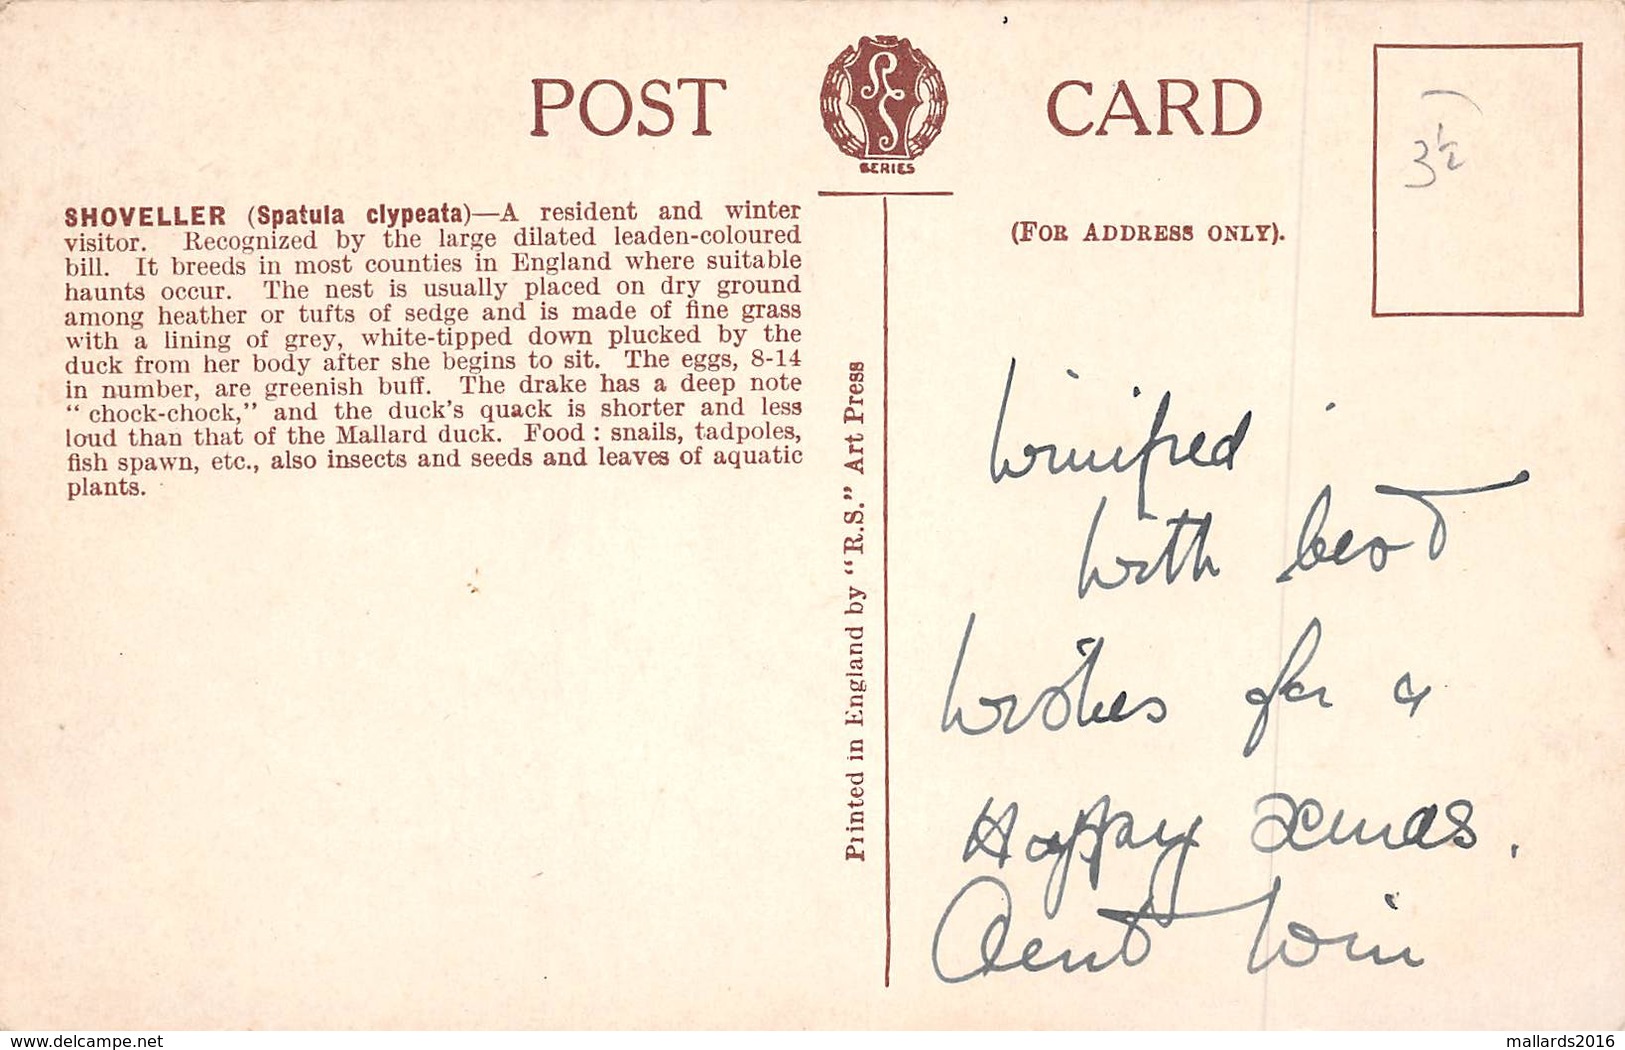 POST CARD
RS
SERIES
SHOVELLER (Spatula clypeata)—A resident and winter
visitor. Recognized by the large dilated leaden-coloured
bill. It breeds in most counties in England where suitable
haunts occur. The nest is usually placed on dry ground
among heather or tufts of sedge and is made of fine grass
with a lining of grey, white-tipped down plucked by the
duck from her body after she begins to sit. The eggs, 8-14
in number, are greenish buff. The drake has a deep note
“ chock-chock,” and the duck's quack is shorter and less
loud than that of the Mallard duck. Food : snails, tadpoles,
fish spawn, etc., also insects and seeds and leaves of aquatic
plants.
Printed in England by “R.S.” Art Press
(FOR ADDRESS ONLY).
3½
Winifred
with best
wishes for a
Happy Xmas.
Aunt Win
www.delcampe.net
mallards2016